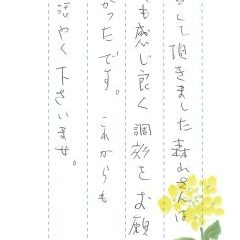 して頂きました森山さんは
も感じ良く調剤をお願
かったです。これからも
話やく下さいませ。